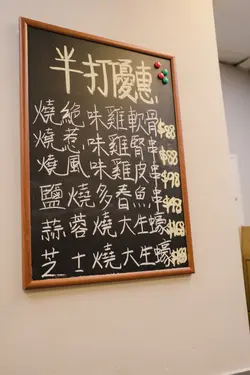 半打優惠
燒絕味雞軟骨
燒惹味雞腎串
燒風味雞皮串
鹽燒多春魚串
蒜蓉燒大生蠔
芝士燒大生蠔